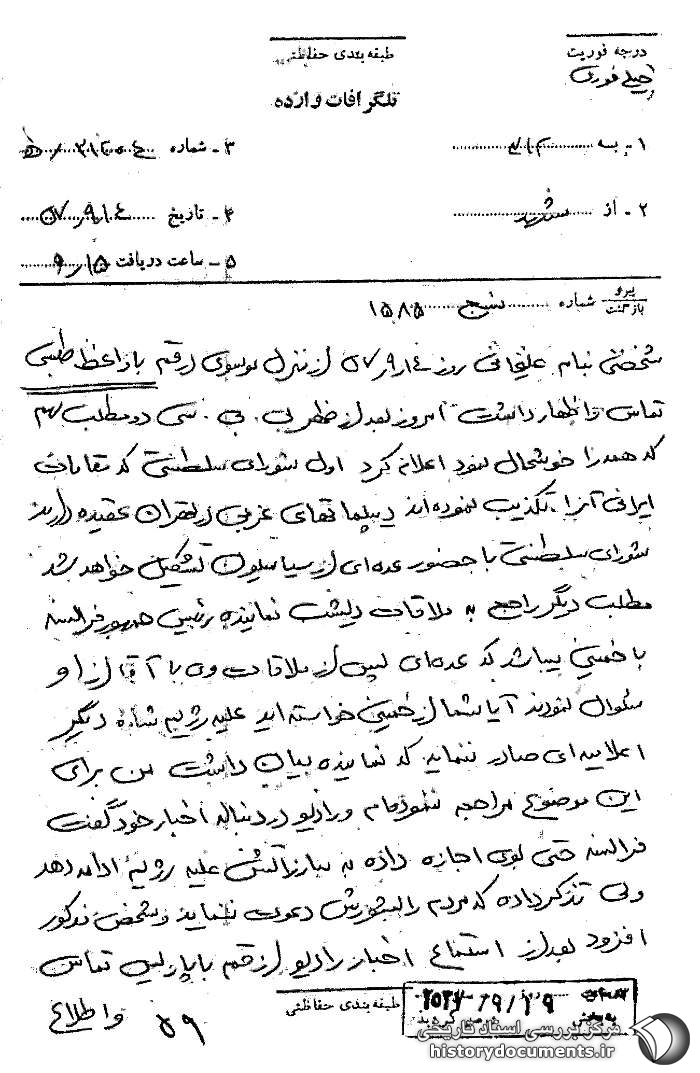 درجه فوریت
خیلی فوری
طبقه بندی حفاظتی
تلگرافات وارده
۱ - به ۳۱۲
۳ - شماره
۲ - از مشهد
۴ - تاریخ ۵۷/۹/۱۴
۵ - ساعت دریافت ۹/۱۵
پیرو
بازگشت شماره ۱۵۸۵
شخصی بنام علیخانی روز ۵۷/۹/۱۴ از منزل موسوی از قم با واعظ طبسی
تماس و اظهار داشت امروز بعد از ظهر بی . بی . سی دو مطلب مهم
که همه را خوشحال نمود اعلام کرد اول شورای سلطنتی که مقامات
ایرانی آنرا تکذیب نموده اند دیپلماتهای غربی در تهران عقیده دارند
شورای سلطنتی با حضور عده ای از سیاسیون تشکیل خواهد شد
مطلب دیگر راجع به ملاقات نماینده رئیس جمهور فرانسه
با خمینی میباشد که عده ای پس از ملاقات وی با آقا از او
سئوال نمودند آیا شما از خمینی خواسته اید علیه رژیم شاه دیگر
اعلامیه ای صادر ننماید که نماینده بیان داشت من برای
این موضوع مراجعه ننموده ام و رادیو در دنباله اخبار خود گفت
فرانسه حتی بوی اجازه داده به مبارزاتش علیه رژیم ادامه دهد
ولی تذکر داده که مردم را بشورش دعوت ننماید و شخص مذکور
افزود بعد از استماع اخبار رادیو از قم با پاریس تماس
و اطلاع
طبقه بندی حفاظتی
۵۹
مرکز بررسی اسناد تاریخی
historydocuments.ir